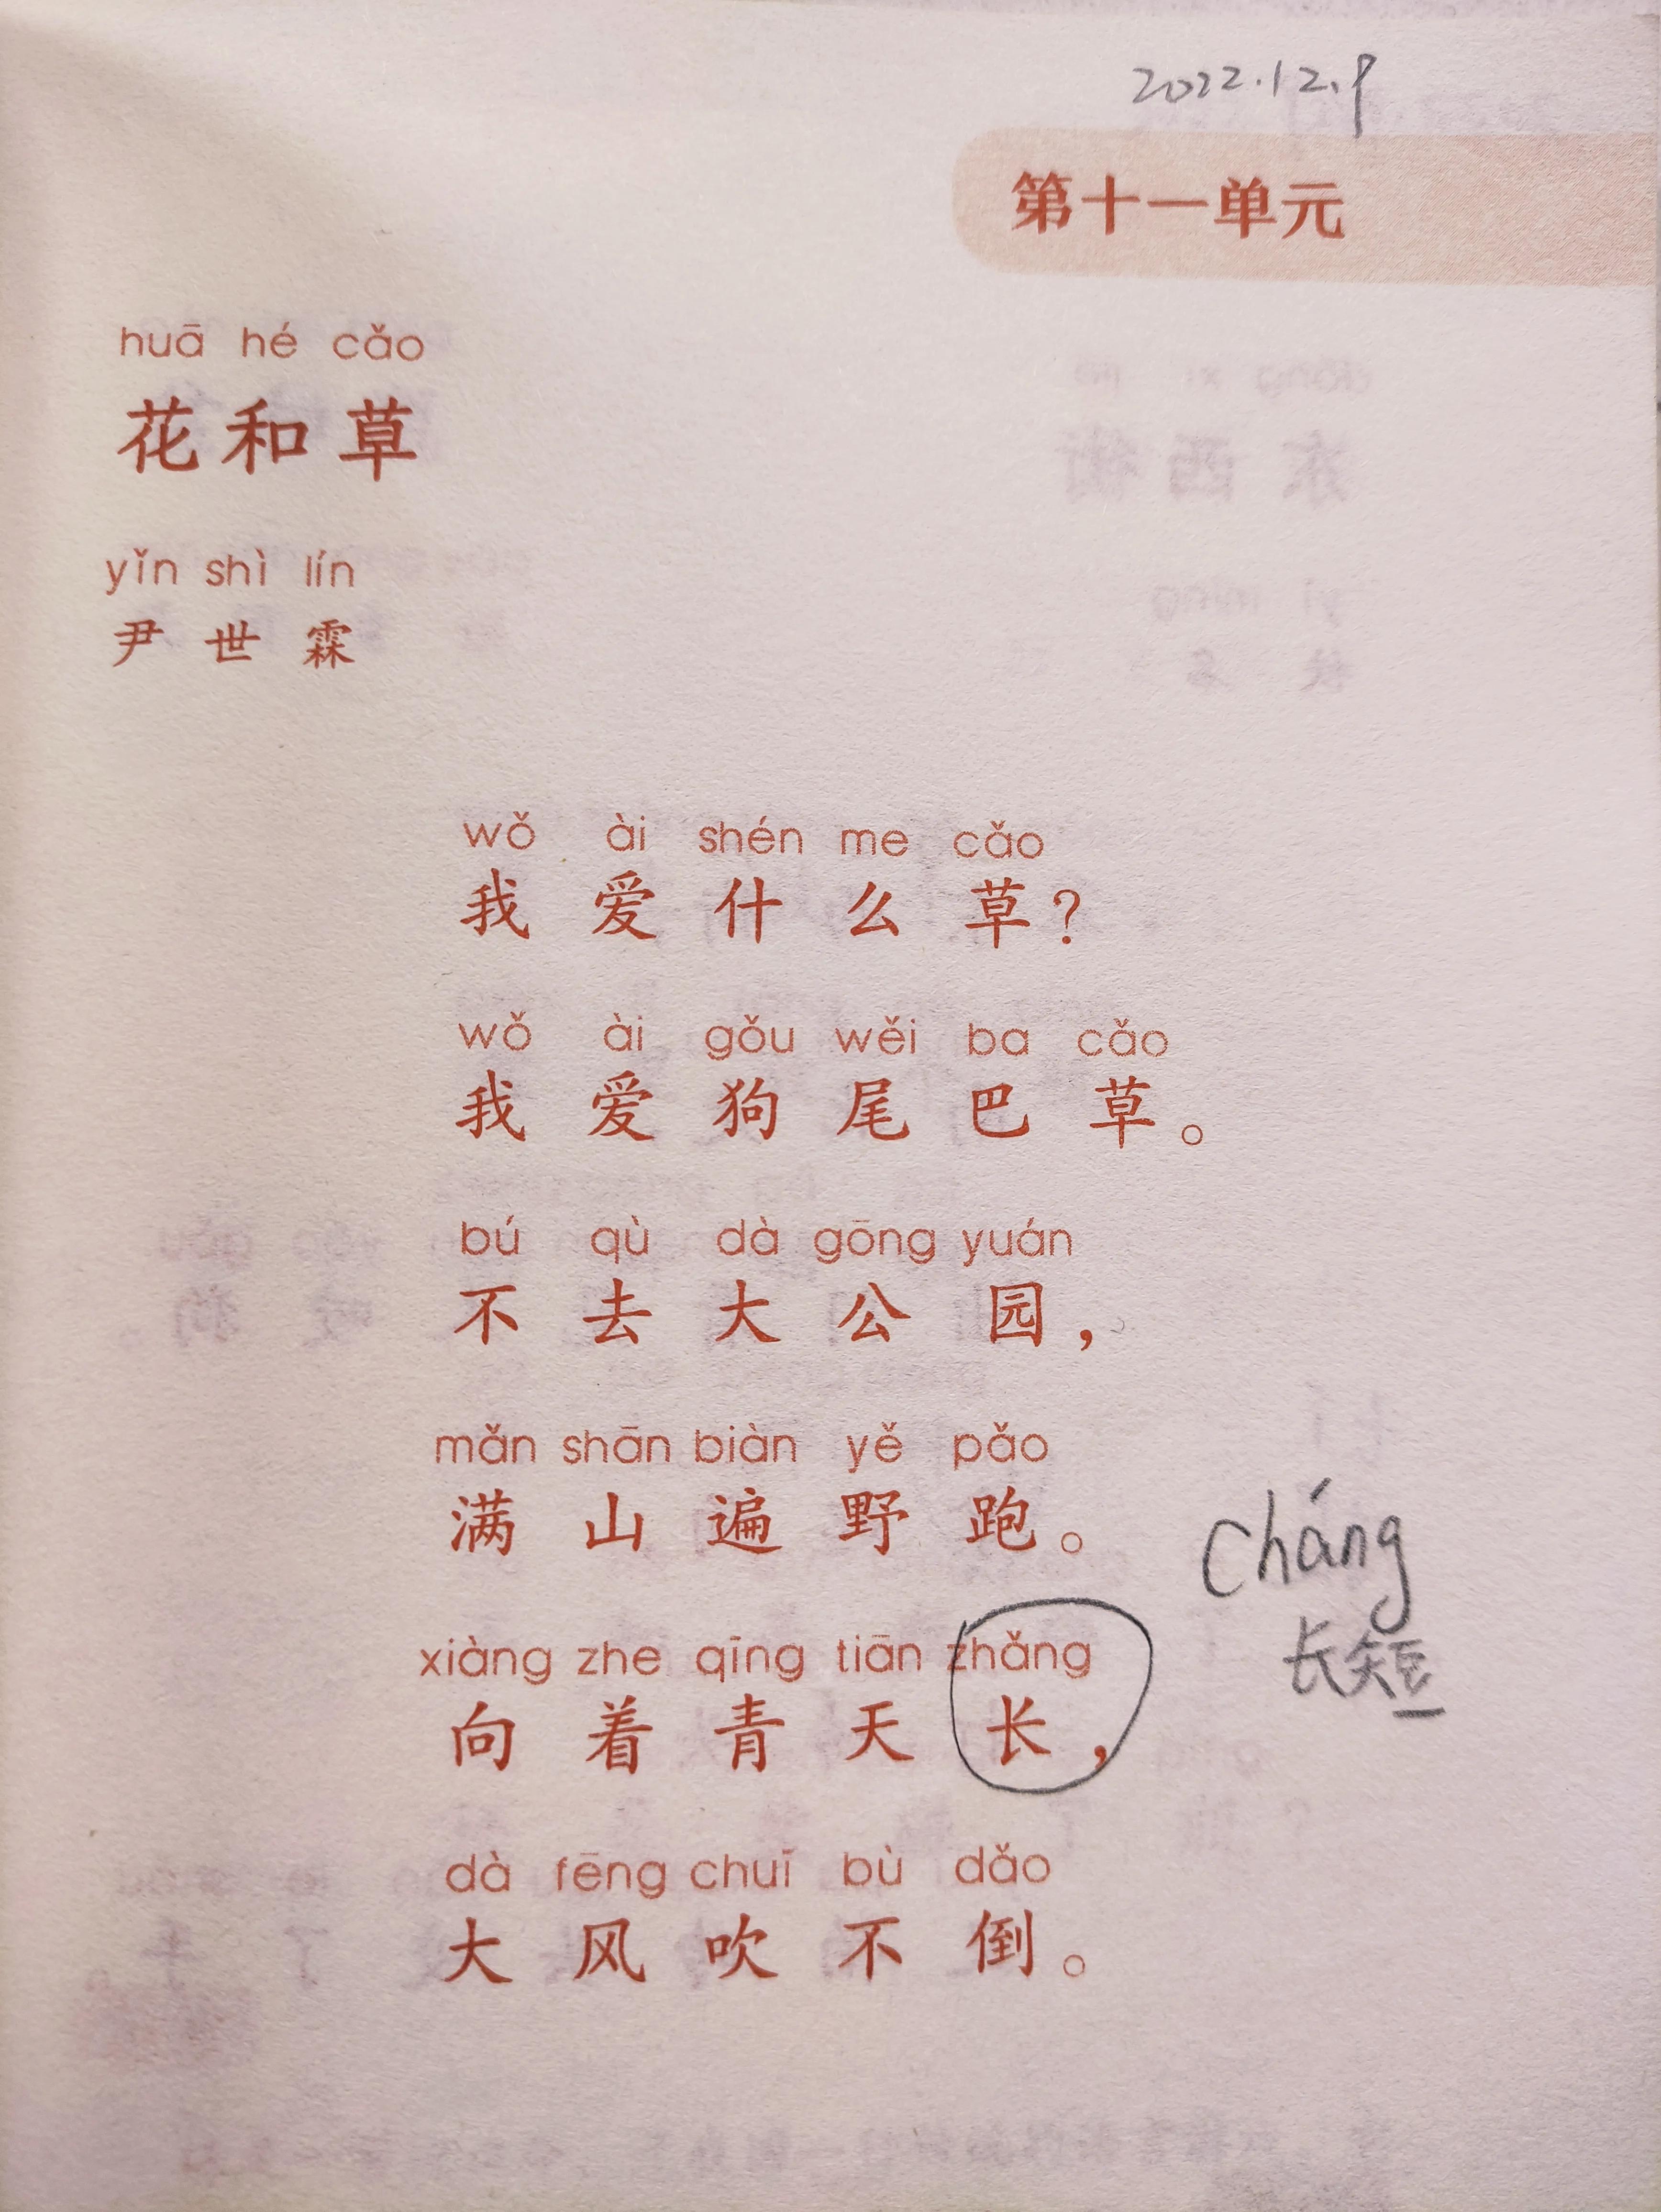 2022.12.9
第十一单元
huā hé cǎo
花和草
yǐn shì lín
尹世霖
wǒ ài shén me cǎo
我爱什么草？
wǒ ài gǒu wěi ba cǎo
我爱狗尾巴草。
bú qù dà gōng yuán
不去大公园，
mǎn shān biàn yě pǎo
满山遍野跑。
cháng
长短
xiàng zhe qīng tiān zhǎng
向着青天长，
dà fēng chuī bù dǎo
大风吹不倒。